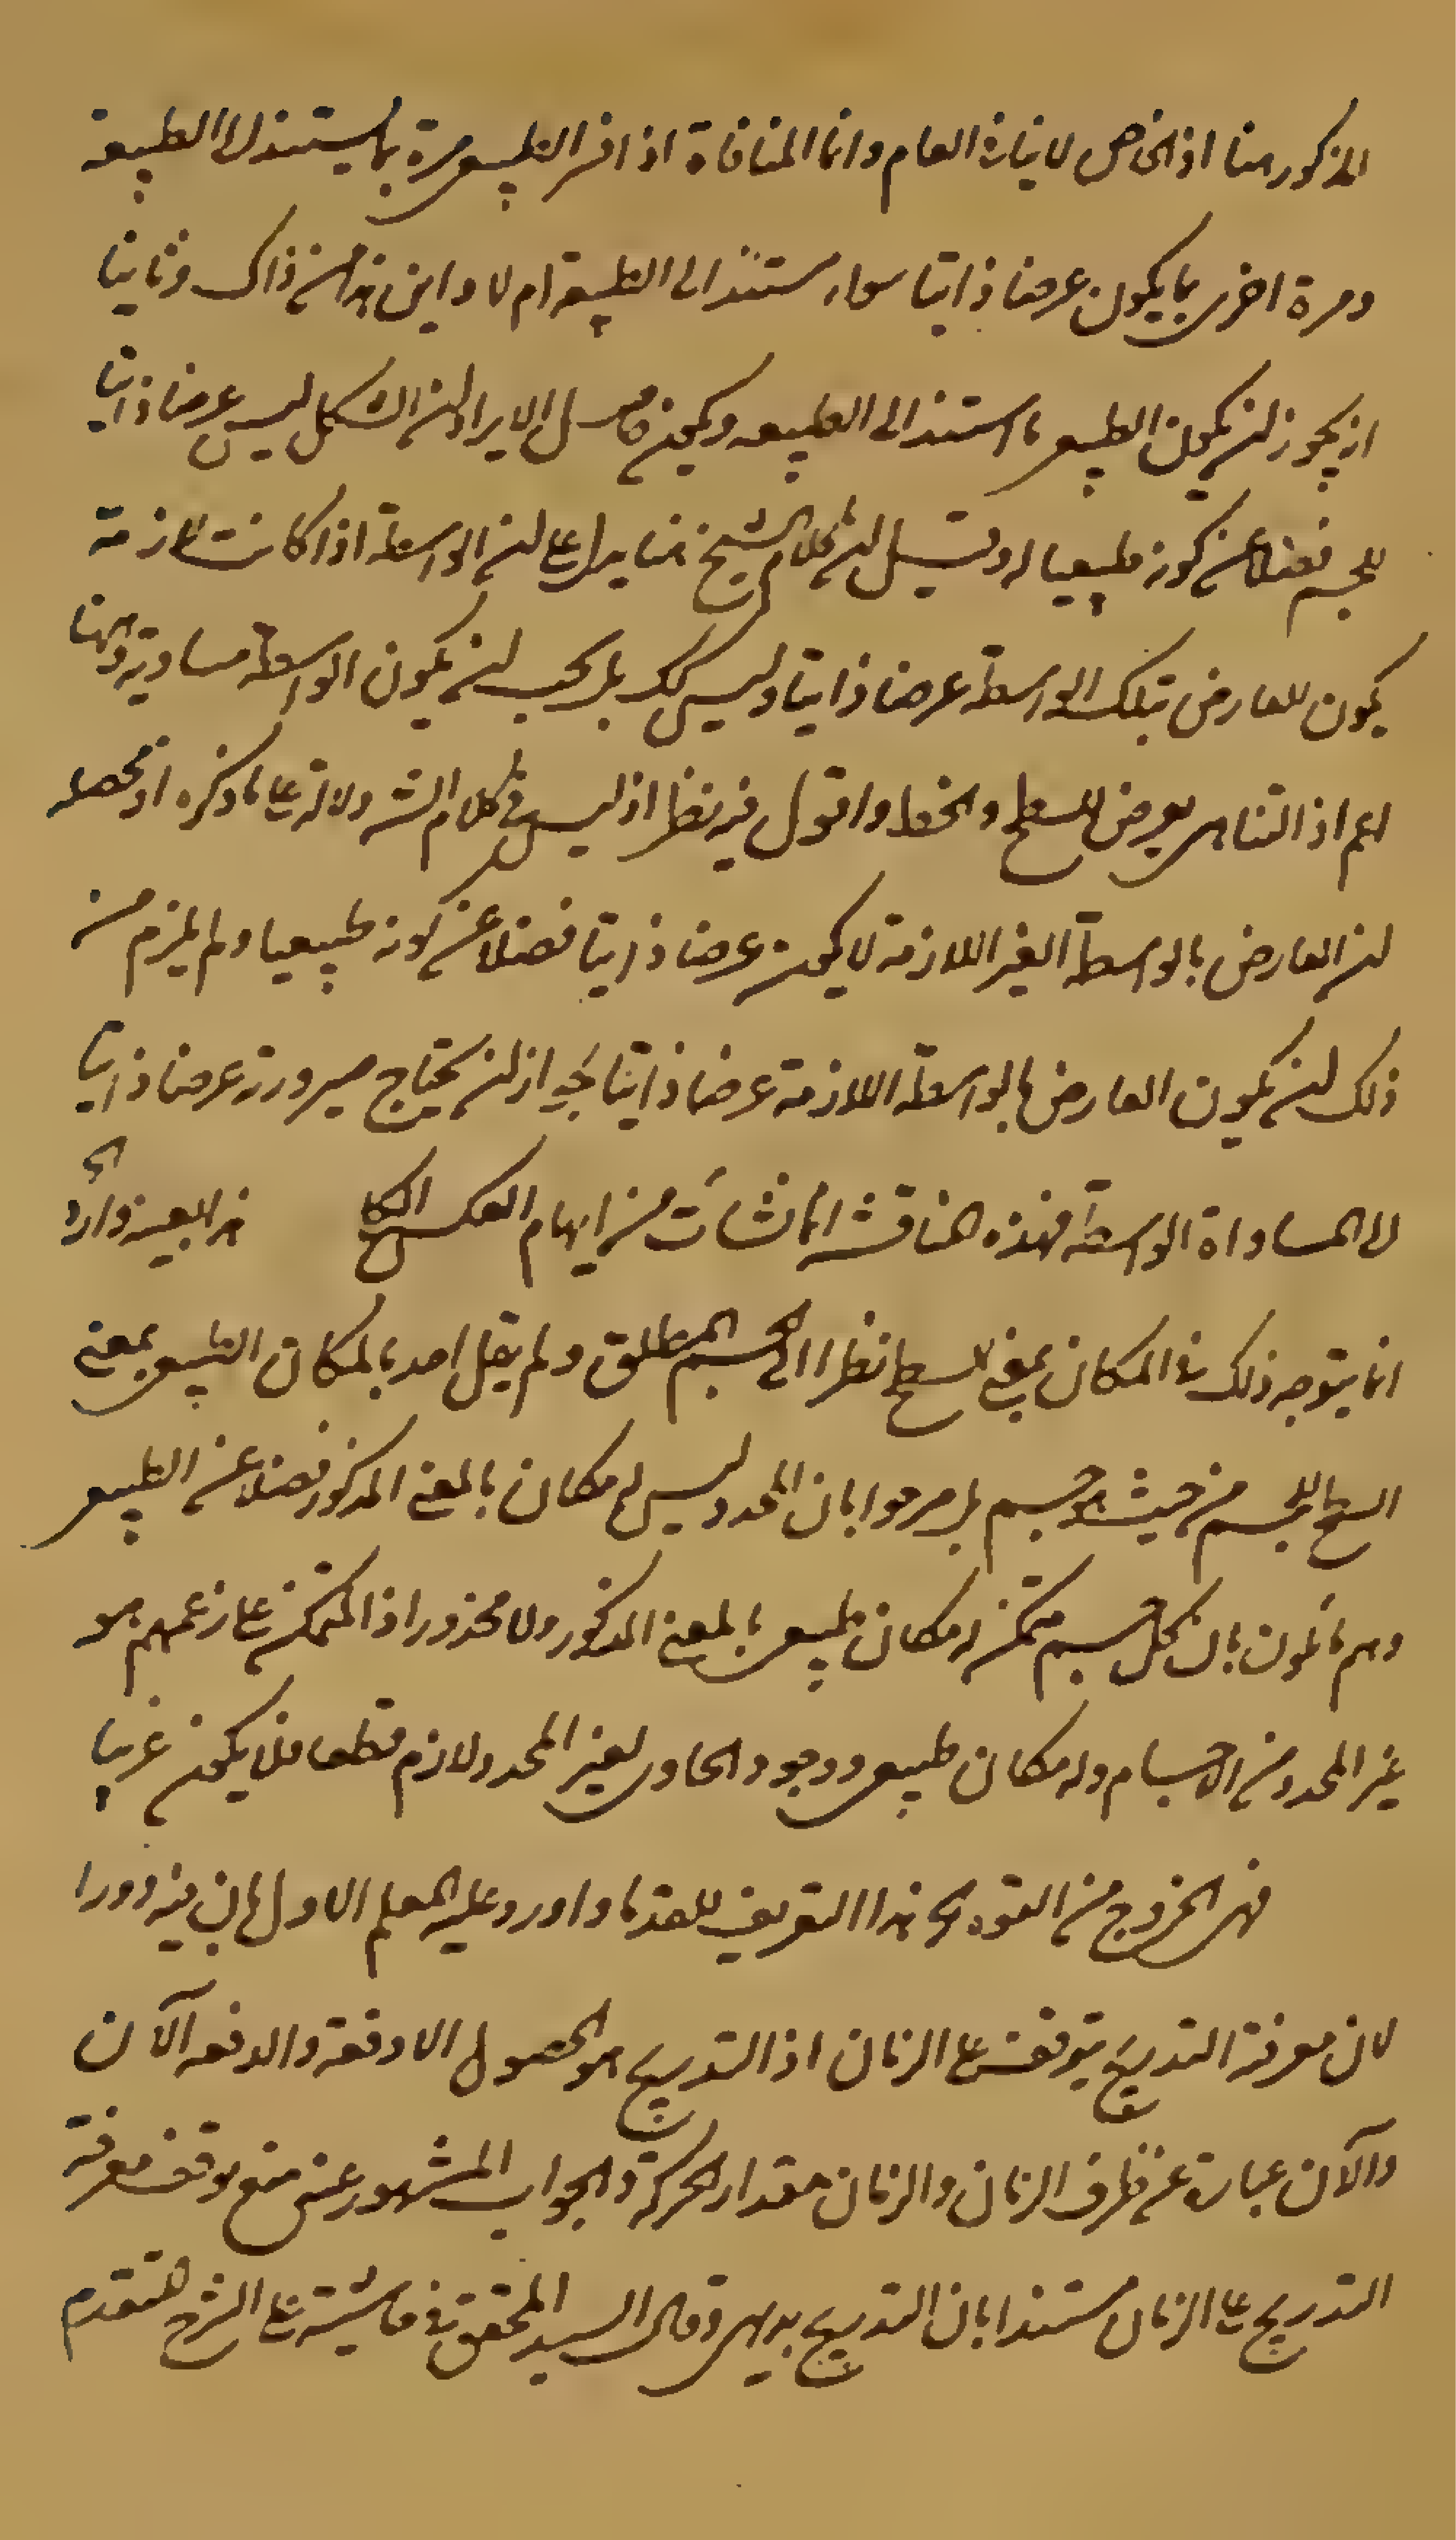 المذكور هنا اذ الخاص لا ينافي العام وانما المنافاة اذا فسر الطبيعي مرة بما يستند الى الطبيعة
ومرة اخرى بما يكون عرضا ذاتيا سواء استند الى الطبيعة ام لا واين هذا من ذاك وثانيا
انه يجوز ان يكون الطبيعي ما استند الى الطبيعه ويكون حاصل الايراد ان الشكل ليس عرضا ذاتيا
للجسم فضلا عن كونه طبيعيا له وقيل ان كلام الشيخ هنا يدل على ان الواسطة اذا كانت لازمة
يكون العارض بتلك الواسطة عرضا ذاتيا وليس كك بل يجب ان يكون الواسطة مساوية وههنا
اعم اذ التناهى يعرض للسطح والخط واقول فيه نظر اذ ليس في كلام الشـ دلالة على ما ذكره اذ محصله
ان العارض بالواسطة الغير اللازمة لا يكون عرضا ذاتيا فضلا عن كونه طبيعيا ولم يلزم من
ذلك ان يكون العارض بالواسطة اللازمة عرضا ذاتيا لجواز ان يحتاج صيرورته عرضا ذاتيا
الى المساواة الواسطة فهذه المناقشة انما نشأت من ايهام العكس الكلي هذا بعينه وارد الخ
انما يتوجه ذلك في المكان بمعنى السطح نظرا الى الجسم المطلق ولم يقل احد بالمكان الطبيعي بمعنى
السطح للجسم من حيث هو جسم بل صرحوا بان المحدد ليس له مكان بالمعنى المذكور فضلا عن الطبيعي
وهم قائلون بان لكل جسم متمكن له مكان طبيعي بالمعنى المذكور ولا محذور اذ المتمكن على زعمهم هو
غير المحدد من الاجسام وله مكان طبيعي ووجود الحاوى لغير المحدد لازم قطعا فلا يكون غريبا
فهى الخروج من القوة الخ هذا التعريف للقدماء واورد عليه المعلم الاول بان فيه دورا
لان معرفة التدريج يتوقف على الزمان اذ التدريج هو الحصول لا دفعة والدفعه الآن
والآن عبارة عن ظرف الزمان والزمان مقدار الحركة والجواب المشهور عنه منع توقف معرفة
التدريج على الزمان مستندا بان التدريج بديهى وقال السيد المحقق في حاشيته على الشرح المتقدم